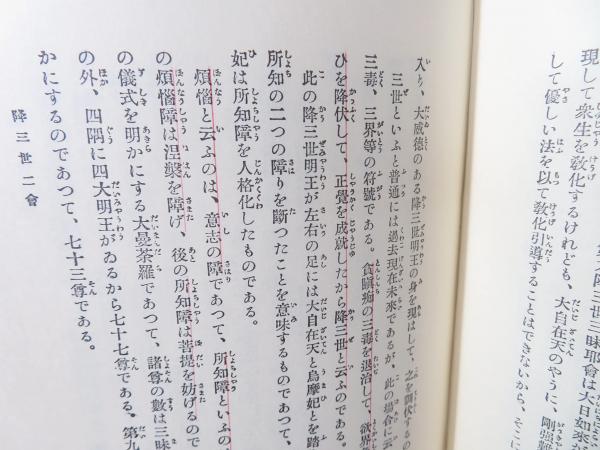 現して衆生を敎化するけれども、大自在天のやうに、剛強難
して優しい法を以て敎化引導することはできないから、そこに
入り、大威德のある降三世明王の身を現はして、之を調伏する
三世といふと普通には過去現在未來であるが、此の場合に云
三毒、三界等の符號である。貪瞋痴の三毒を退治して、欲界
ひを降伏して、正覺を成就したから降三世と云ふのである。
此の降三世明王が左右の足には大自在天と烏摩妃とを踏
所知の二つの障りを斷つたことを意味するものであつて、
妃は所知障を人格化したものである。
煩惱と云ふのは、意志の障であつて、所知障といふの
の煩惱障は涅槃を障げ、後の所知障は菩提を妨げるので
の儀式を明かにする大曼荼羅であつて、諸尊の數は三昧
の外、四隅に四大明王がゐるから七十七尊である。第九
かにするのであつて、七十三尊である。
降三世二會